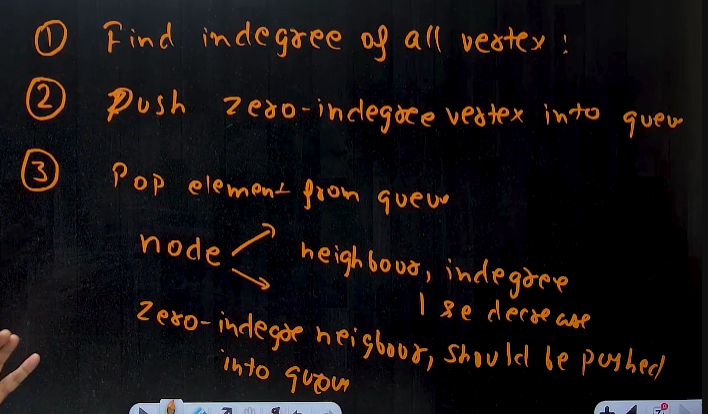 ① Find indegree of all vertex:
② Push zero-indegree vertex into queue
③ Pop element from queue
node
neighbour, indegree
1 se decrease
zero-indegre neigbour, should be pushed
into queue